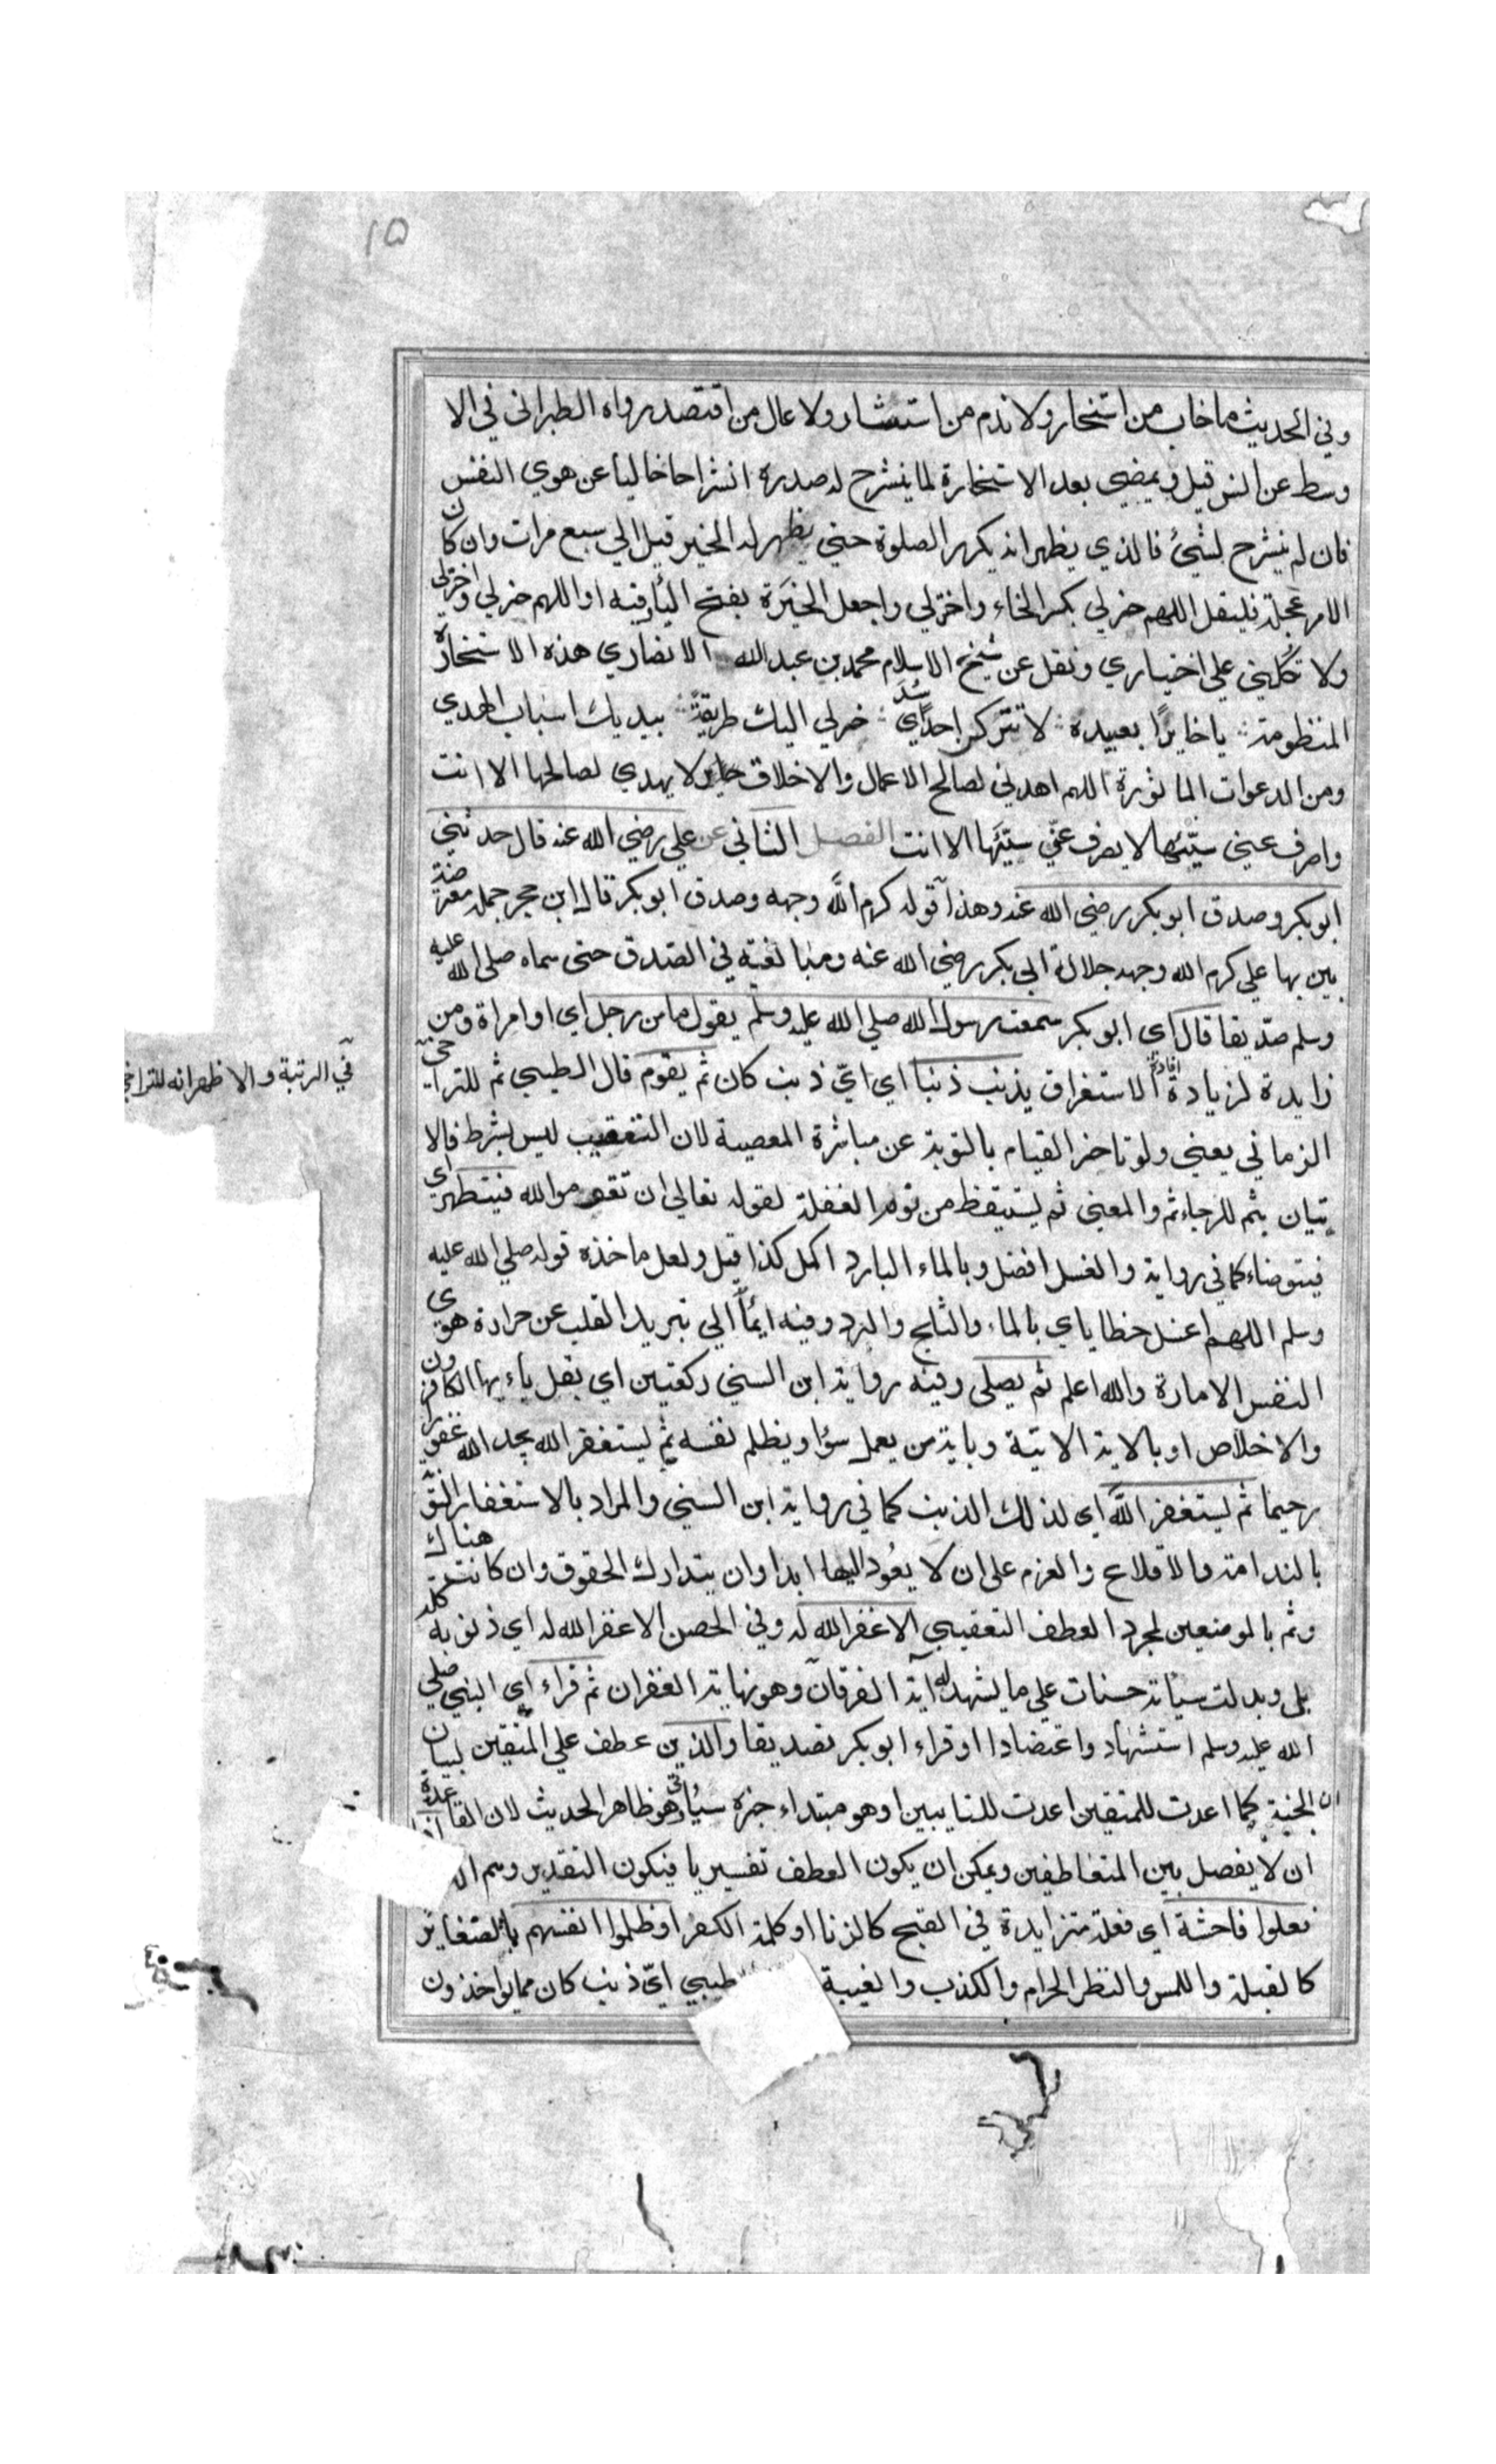 ١٥
وفي الحديث ما خاب من استخار ولا ندم من استشار ولا عال من اقتصد رواه الطبراني في الا
وسط عن انس قيل ويمضي بعد الاستخارة لما ينشرح له صدره انشراحا خاليا عن هوي النفس
فان لم ينشرح لشيئ فالذي يظهر انه يكرر الصلوة حتي يظهر له الخير قيل الي سبع مرات وان كان
الامر عجلة فليقل اللهم خر لي بكسر الخاء واختر لي واجعل الخيَرة بفتح اليأ فيه او اللهم خر لي واختر لي
ولا تكلني علي اختياري ونقل عن شيخ الاسلام محمد بن عبد الله الانصاري هذه الاستخارة
المنظومة يا خايرًا بعبيده لا تتركن احدًا سُدَي خر لي اليك طريقةً بيديك اسباب الهدي
ومن الدعوات الماثورة اللهم اهدني لصالح الاعمال والاخلاق لا يهدي لصالحها الا انت
واصرف عني سيّئها لا يصرف عنّي سيّئها الا انت الفصل الثاني عن علي رضي الله عنه قال حدثني
ابو بكر وصدق ابو بكر رضي الله عنه وهذا قوله كرم الله وجهه وصدق ابو بكر قال ابن حجر جملة معترضة
بين بها علي كرم الله وجهه جلالة ابي بكر رضي الله عنه ومبالغته في الصدق حتى سماه صلى الله عليه
وسلم صدّيقا قال اي ابو بكر سمعت رسول الله صلي الله عليه وسلم يقول ما من رجل اي او امراة ومن
زايدة لزيادة افادة الاستغراق يذنب ذنبا اي ايّ ذنب كان ثم يقوم قال الطيبي ثم للتراخي
في الرتبة والاظهر انه للتراخي
الزماني يعني ولو تاخر القيام بالتوبة عن مباشرة المعصية لان التعقيب ليس بشرط فالا
تيان بثم للرجاء ثم والمعنى ثم يستيقظ من نوم الغفلة لقوله تعالي ان تقوموا لله فيتطهر اي
فيتوضاء كما في رواية والغسل افضل وبالماء البارد اكمل كذا قيل ولعل ماخذه قوله صلي الله عليه
وسلم اللهم اغسل خطاياي بالماء والثلج والبرد وفيه ايمأ الي تبريد القلب عن حرارة هوي
النفس الامارة والله اعلم ثم يصلي وفيه رواية ابن السني ركعتين اي بقل يا ءيها الكافرون
والاخلاص او بالاية الاتية وباية من يعمل سوًا او يظلم نفسه ثم يستغفر الله يجد الله غفورا
رحيما ثم يستغفر الله اي لذلك الذنب كما في رواية ابن السني والمراد بالاستغفار التوبة
بالندامة والاقلاع والعزم على ان لا يعُود اليها ابدا وان يتدارك الحقوق وان كانت هناك
وثم بالموضعين لمجرد العطف التعقيبي الا غفر الله له وفي الحصن الا غفر الله له اي ذنوبه كله
بلي وبدلت سيأته حسنات علي ما يشهد له آية الفرقان وهو نهاية الغفران ثم قراء اي النبي صلي
الله عليه وسلم استشهاد واعتضادا او قراء ابو بكر تصديقا والذين عطف علي المتقين لبيان
ان الجنة كما اعدت للمتقين اعدت للتايبين او هو مبتداء خبره سيُأتي وهو ظاهر الحديث لان القاعدة
ان لا يفصل بين المتعاطفين ويمكن ان يكون العطف تفسيريا فيكون التقدير وهم
فعلوا فاحشة اي فعلة متزايدة في القبح كالزنا او كلمة الكفر او ظلموا انفسهم بالصغاير
كالقبلة واللمس والنظر الحرام والكذب والغيبة الطيبي ايّ ذنب كان مما يواخذون